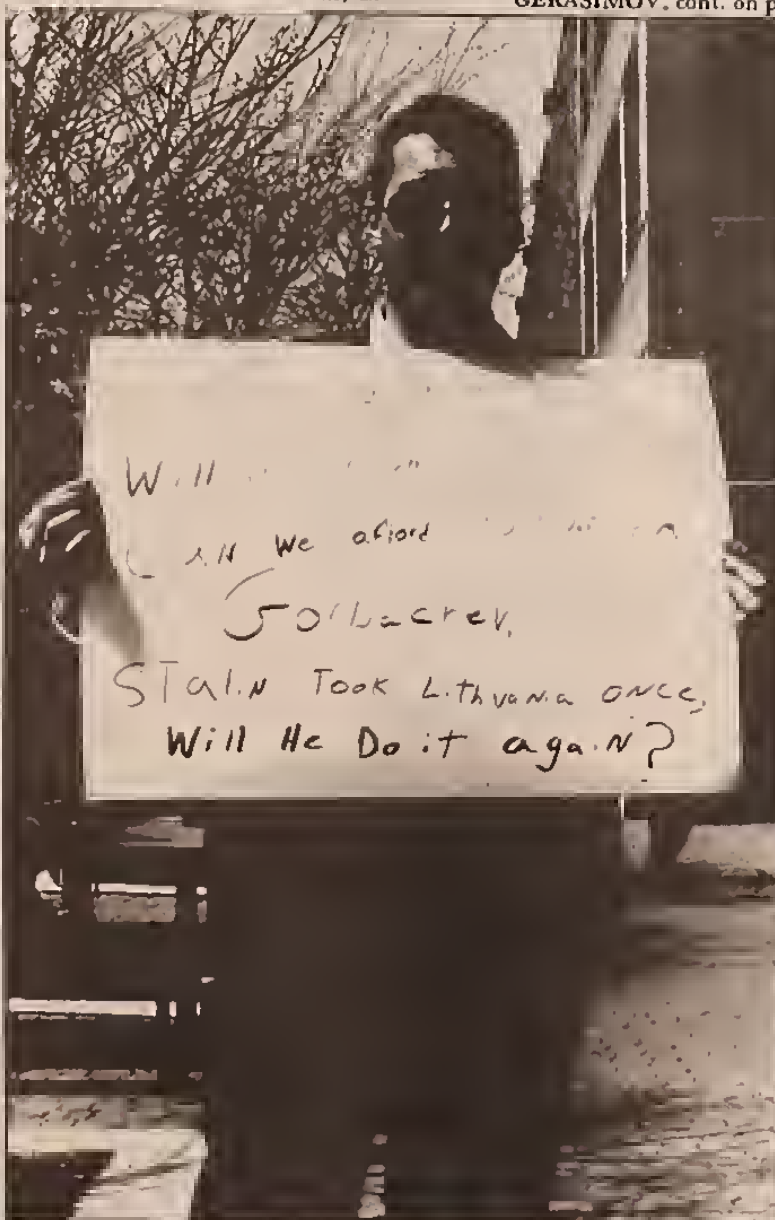 GERASIMOV, cont. on p
Will
CAN We afford
Gorbachev.
STalin Took Lithvania ONCE,
Will He Do it again?